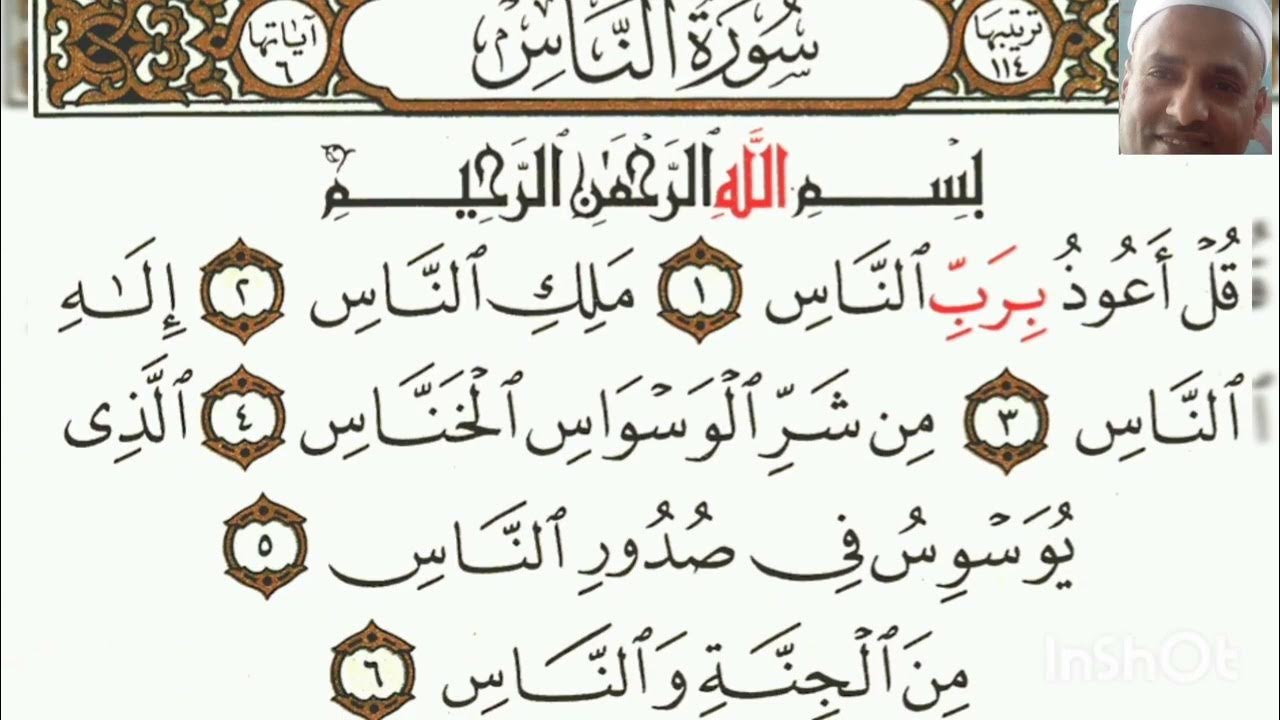 ترتيبها ١١٤
سُورَةُ النَّاسِ
آياتها ٦
بِسْمِ اللَّهِ الرَّحْمَٰنِ الرَّحِيمِ
قُلْ أَعُوذُ بِرَبِّ ٱلنَّاسِ ١ مَلِكِ ٱلنَّاسِ ٢ إِلَـٰهِ
ٱلنَّاسِ ٣ مِن شَرِّ ٱلْوَسْوَاسِ ٱلْخَنَّاسِ ٤ ٱلَّذِى
يُوَسْوِسُ فِى صُدُورِ ٱلنَّاسِ ٥
مِنَ ٱلْجِنَّةِ وَٱلنَّاسِ ٦
InShOt